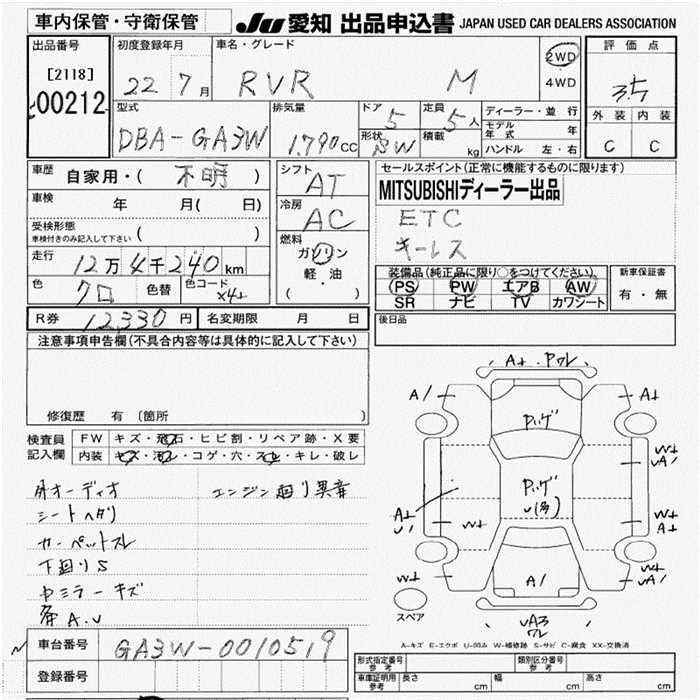 車内保管・守衛保管
JU 愛知 出品申込書 JAPAN USED CAR DEALERS ASSOCIATION
出品番号
[2118]
00212
初度登録年月
22年 7月
車名・グレード
RVR M
2WD
4WD
評価点
3.5
外装 内装
C C
型式
DBA-GA3W
排気量
1,790cc
ドア 5
形状 SW
定員 5人
積載 kg
ディーラー・並行
モデル年式 年
ハンドル 左・右
車歴 自家用・( 不明 )
車検 年 月( 日)
受検形態
車検付きのみ記入して下さい ( )
走行 12万4千240km
色 クロ 色替 色コード X42
シフト AT
冷房 AC
燃料
ガソリン
軽・油
( )
セールスポイント(正常に機能するものに限ります)
MITSUBISHIディーラー出品
ETC
キーレス
装備品(純正品に限り○をつけてください)
PS PW エアB AW
SR ナビ TV カワシート
新車保証書
有・無
R券 12,330円 名変期限 月 日
後日品
注意事項申告欄(不具合内容等は具体的に記入して下さい)
修復歴 有 (箇所 )
検査員記入欄
FW キズ・飛石・ヒビ割・リペア跡・X要
内装 キズ・汚レ・コゲ・穴・スレ・キレ・破レ
外オーディオ
エンジン廻り異音
シートヘタリ
カーペットスレ
下廻りS
中ミラーキズ
A.U
A1
Pハゲ
Pハゲ
A1
W± UA1
スペア
UA3
ワレ
A-キズ E-エクボ U-凹み W-補修跡 S-サビ C-腐食 XX-交換済
車台番号 GA3W-0010519
登録番号
形式指定番号 参考
類別区分番号 参考
車庫証明用 参考 長さ cm 幅 cm 高さ cm